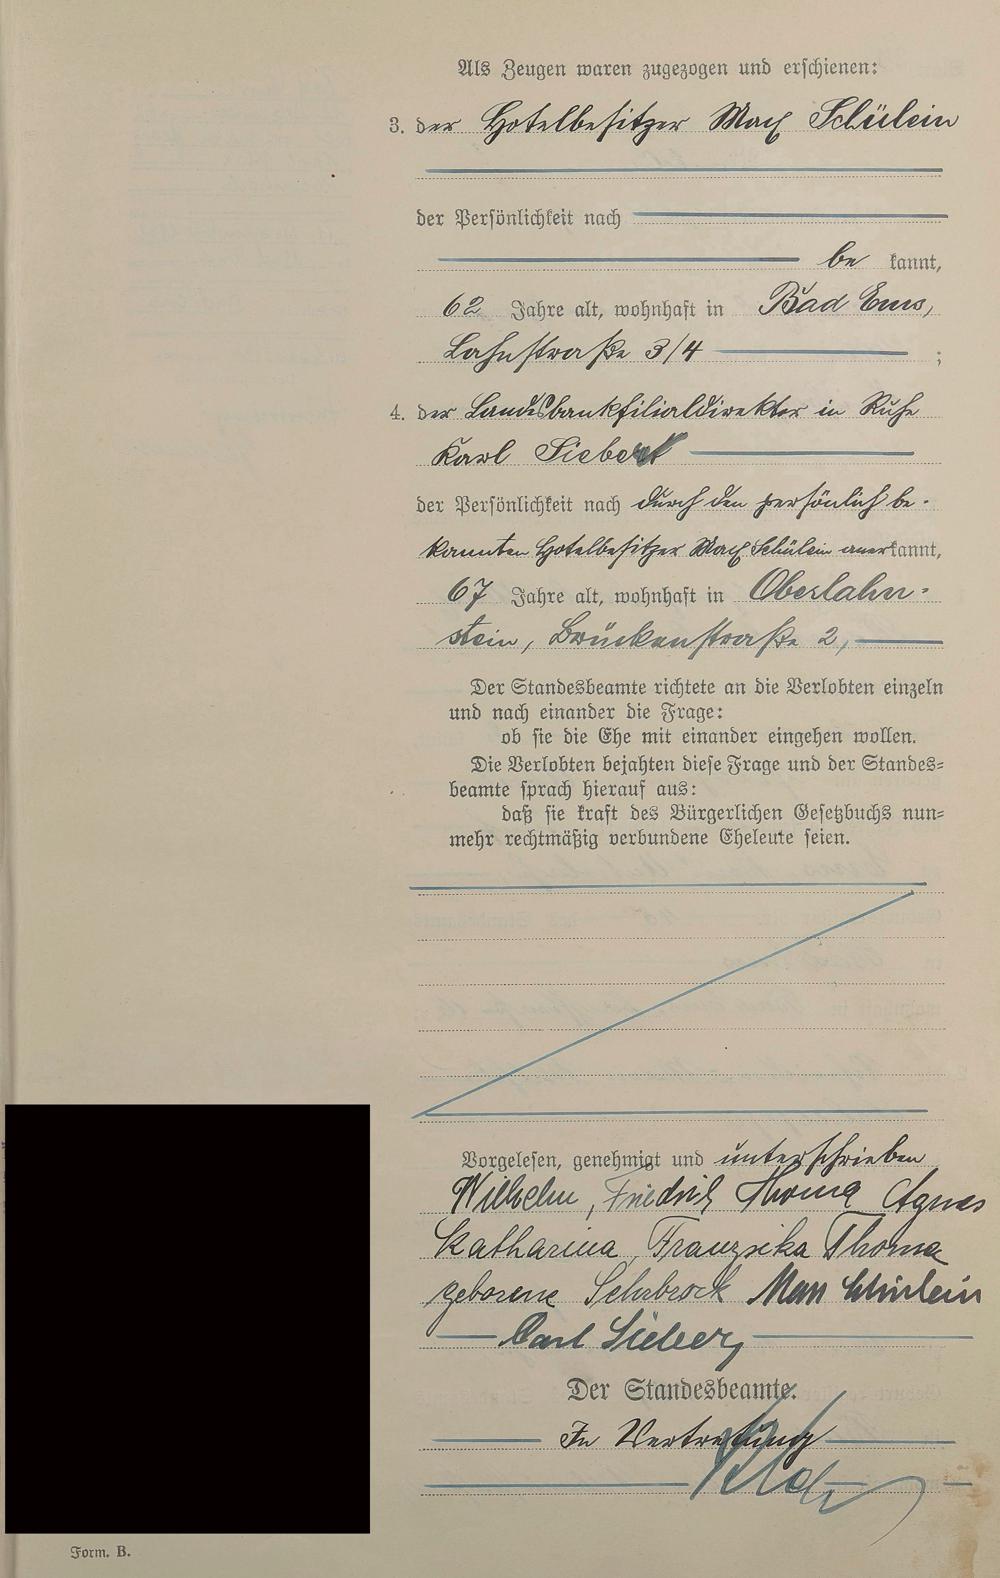 Als Zeugen waren zugezogen und erschienen:
3. der Hotelbesitzer Max Schülein
der Persönlichkeit nach
be kannt,
62 Jahre alt, wohnhaft in Bad Ems,
Lahnstraße 3/4 ;
4. der Landesbankfilialdirektor in Ruhe
Karl Siebert
der Persönlichkeit nach durch den persönlich be-
kannten Hotelbesitzer Max Schülein anerkannt,
67 Jahre alt, wohnhaft in Oberlahn-
stein, Brückenstraße 2,
Der Standesbeamte richtete an die Verlobten einzeln
und nach einander die Frage:
ob sie die Ehe mit einander eingehen wollen.
Die Verlobten bejahten diese Frage und der Standes-
beamte sprach hierauf aus:
daß sie kraft des Bürgerlichen Gesetzbuchs nun-
mehr rechtmäßig verbundene Eheleute seien.
Vorgelesen, genehmigt und unterschrieben
Wilhelm, Friedrich Thoma Agnes
Katharina, Franziska Thoma
geborene Sehrbrock Max Schülein
Carl Siebert
Der Standesbeamte.
In Vertretung
Form. B.